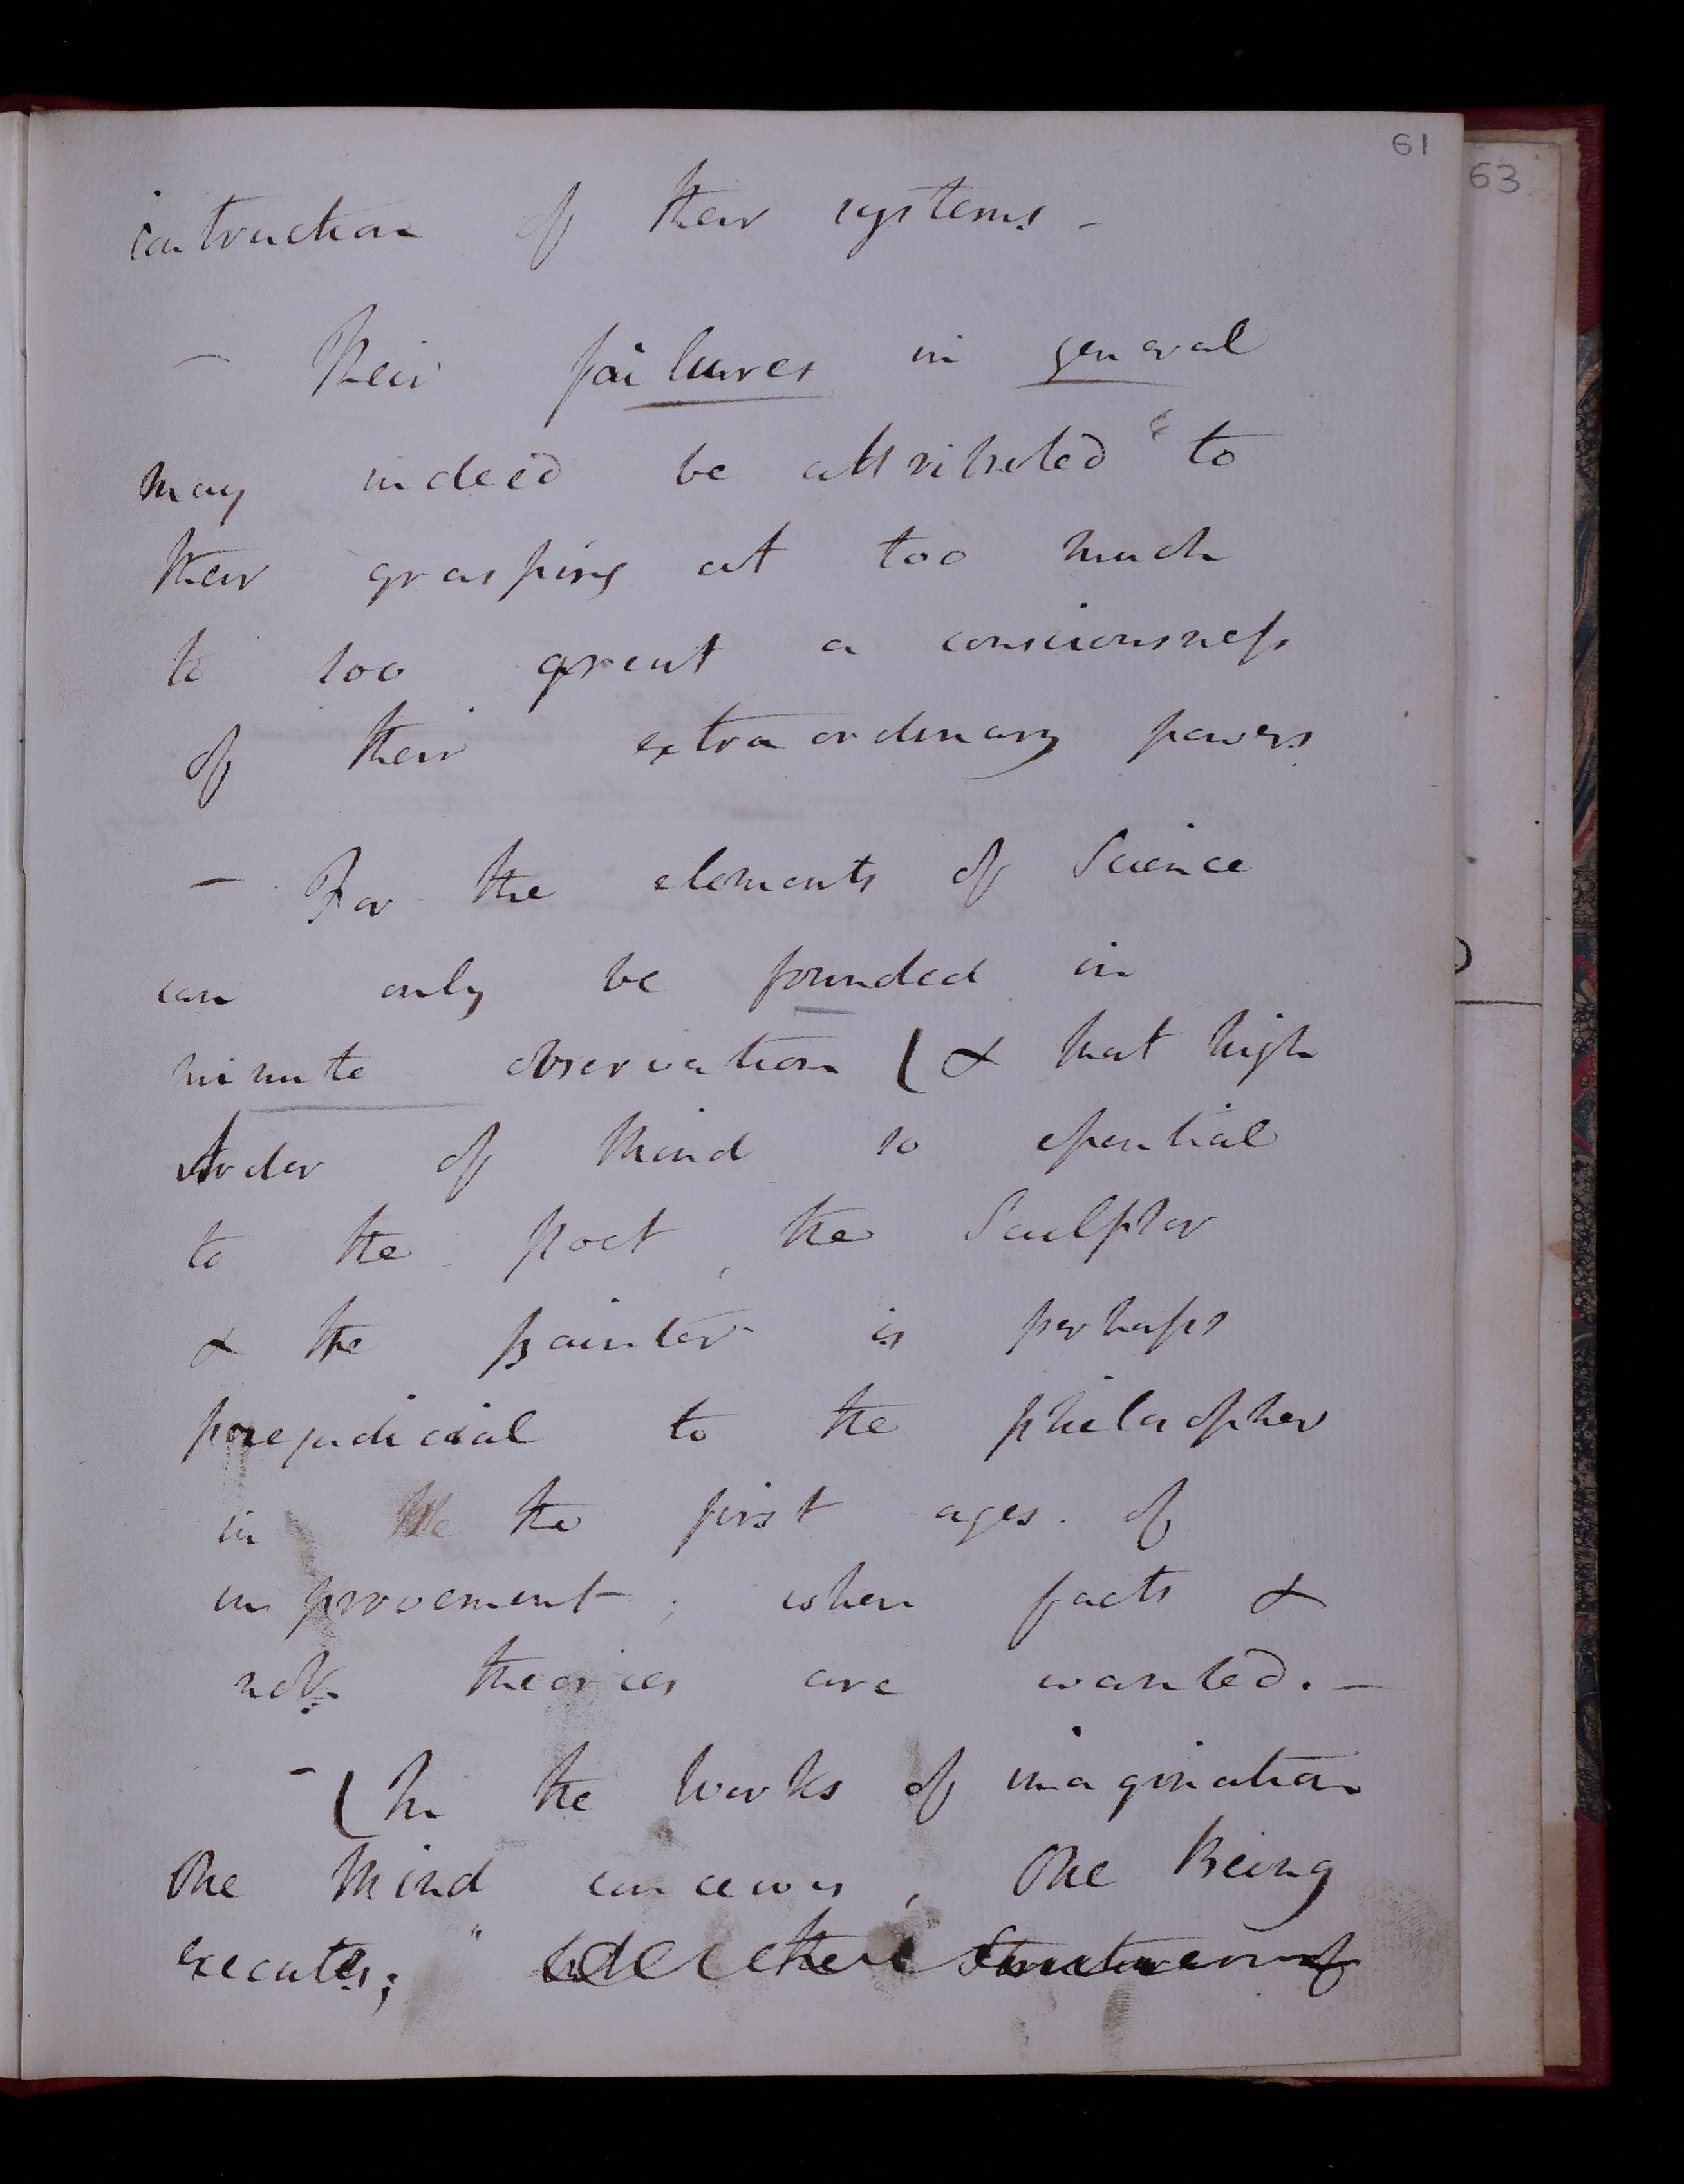 61
63
contruction of their systems -
- Their failures in general
may indeed be attributed to
their grasping at too much
to too great a consciousness
of their extraordinary powers
- For the elements of Science
can only be founded in
minute observation ( & that high
order of Mind so essential
to the poet, the Sculptor
& the painter is perhaps
prejudicial to the philosopher
in the the first ages of
improvement; when facts &
not theories are wanted. -
- ( In the Works of imagination
One Mind conceives, One Being
executes; "